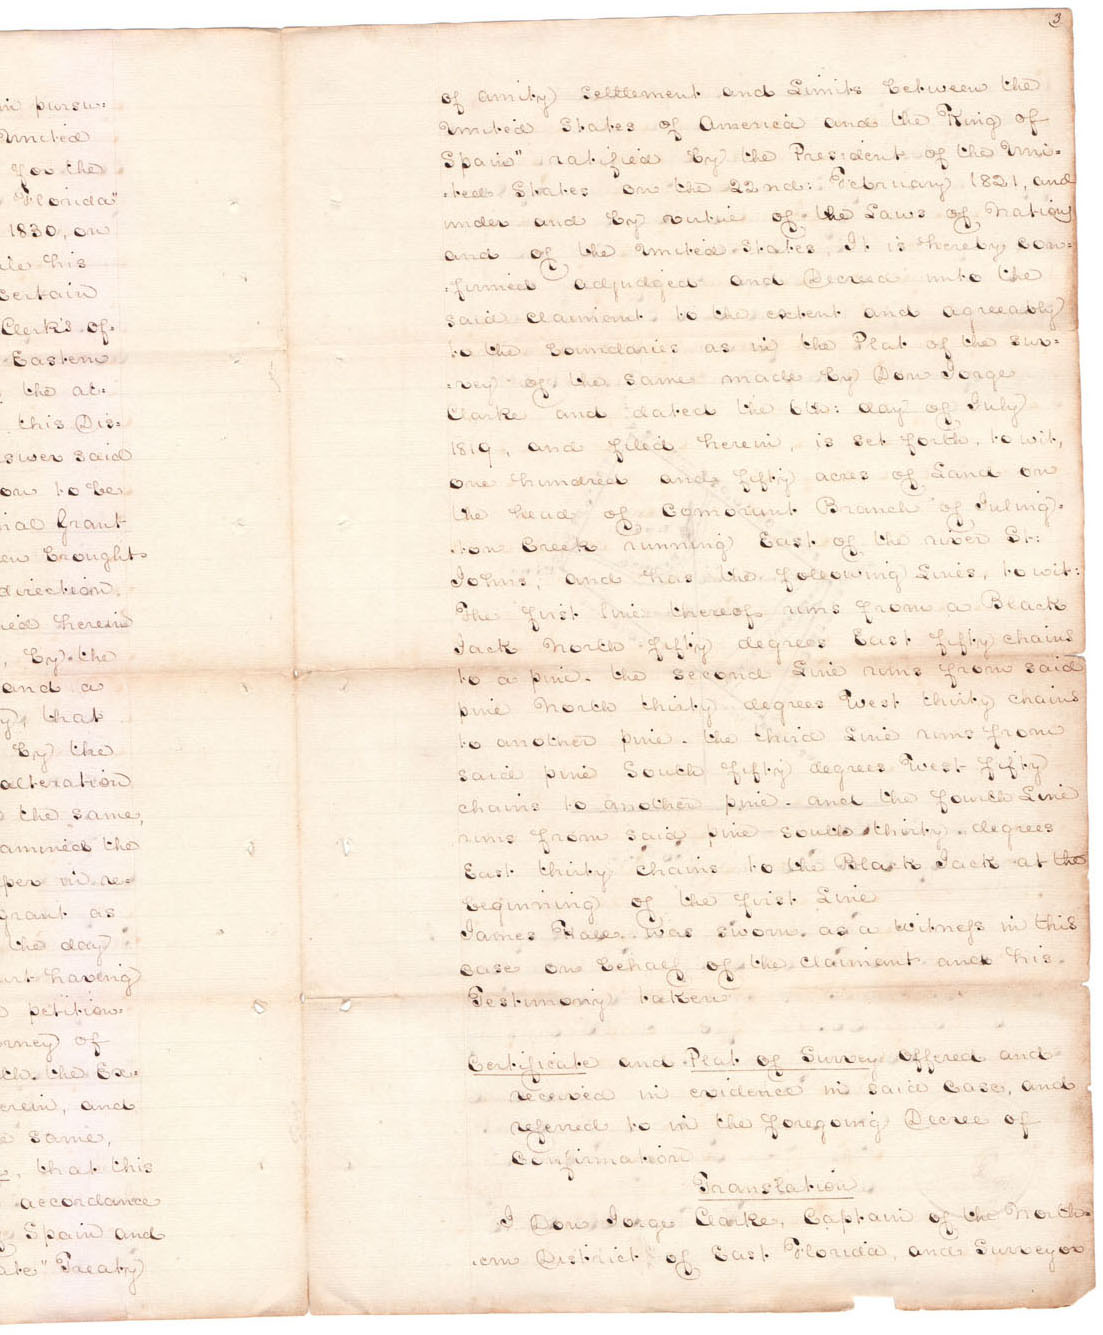 in pursu-
United
for the
Florida"
1830, on
his
Certain
Clerk's of-
Eastern
the at-
this Dis-
swer said
on to be
Grant
brought
direction.
herein
, by the
and a
that
by the
alteration
the same,
the
per in re-
grant as
the day
having
petition-
of
the Ex-
, and
same,
, that this
accordance
Spain and
" Treaty
3
of amity Settlement and Limits between the
United States of America and the King of
Spain" ratified by the President of the Uni-
-ted States on the 22nd: February 1821, and
under and by virtue of the Laws of Nations
and of the United States, It is hereby con-
-firmed adjudged and Decreed unto the
said claimant to the extent and agreeably
to the boundaries as in the Plat of the sur-
-vey of the same made by Don Jorge
Clarke and dated the 6th: day of July
1819, and filed herein, is set forth, to wit,
one hundred and fifty acres of Land on
the head of Cormorant Branch of Juling-
-ton Creek running East of the river St:
Johns, and has the following Lines, to wit:
The first line thereof runs from a Black
Jack North fifty degrees East fifty chains
to a pine. the second Line runs from said
pine North thirty degrees West thirty chains
to another pine. the third Line runs from
said pine South fifty degrees West fifty
chains to another pine. and the fourth Line
runs from said pine south thirty degrees
East thirty chains to the Black Jack at the
beginning of the first Line
James Hall was sworn as a witness in this
case on behalf of the claimant and his
Testimony taken
Certificate and Plat of Survey offered and
received in evidence in said Case, and
referred to in the foregoing Decree of
Confirmation
Translation
I Don Jorge Clarke, Captain of the North-
-ern District of East Florida, and Surveyor